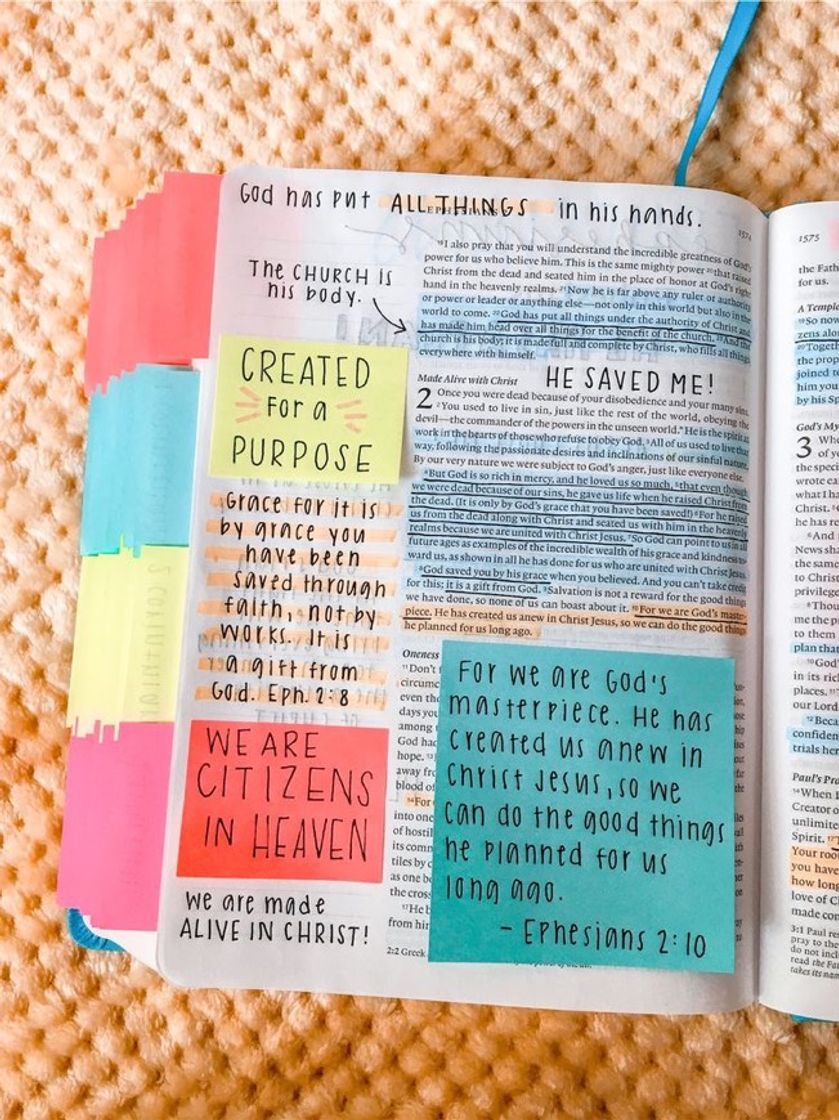 God has put ALL THINGS in his hands.
EPHESIANS
1574
The CHURCH is
his body.
19I also pray that you will understand the incredible greatness of God's
power for us who believe him. This is the same mighty power 20that raised
Christ from the dead and seated him in the place of honor at God's right
hand in the heavenly realms. 21Now he is far above any ruler or authority
or power or leader or anything else—not only in this world but also in the
world to come. 22God has put all things under the authority of Christ and
has made him head over all things for the benefit of the church. 23And the
church is his body; it is made full and complete by Christ, who fills all things
everywhere with himself.
CREATED
FOR a
PURPOSE
Made Alive with Christ
HE SAVED ME!
2 Once you were dead because of your disobedience and your many sins.
2You used to live in sin, just like the rest of the world, obeying the
devil—the commander of the powers in the unseen world.* He is the spirit at
work in the hearts of those who refuse to obey God. 3All of us used to live that
way, following the passionate desires and inclinations of our sinful nature.
By our very nature we were subject to God's anger, just like everyone else.
4But God is so rich in mercy, and he loved us so much, 5that even though
we were dead because of our sins, he gave us life when he raised Christ from
the dead. (It is only by God's grace that you have been saved!) 6For he raised
us from the dead along with Christ and seated us with him in the heavenly
realms because we are united with Christ Jesus. 7So God can point to us in all
future ages as examples of the incredible wealth of his grace and kindness to-
ward us, as shown in all he has done for us who are united with Christ Jesus.
8God saved you by his grace when you believed. And you can't take credit
for this; it is a gift from God. 9Salvation is not a reward for the good things
we have done, so none of us can boast about it. 10For we are God's master-
piece. He has created us anew in Christ Jesus, so we can do the good things
he planned for us long ago.
Grace for it is
by grace you
have been
saved through
faith, not by
works. It is
a gift from
God. Eph. 2:8
WE ARE
CITIZENS
IN HEAVEN
we are made
ALIVE IN CHRIST!
Oneness
11Don't
circumc
even th
days you
among
God had
hope.
away fr
blood of
14For
into one
of hostil
its comm
tiles by c
as one b
the cross
17He b
from him
2:2 Greek
For we are God's
masterpiece. He has
created us anew in
Christ Jesus, so we
can do the good things
he planned for us
long ago.
- Ephesians 2:10
1575
the Fath
for us.
A Temple
19So now
zens alon
20Togeth
the prop
joined to
him you
by his Sp
God's My
3 Whe
of yo
the speci
wrote ea
what I ha
Christ.
he has r
6And
News sh
the same
to Christ
privilege
8Thou
me the p
to them
plan that
10God'
in its rich
places.
our Lord
12Beca
confiden
trials her
Paul's Pra
14When I
Creator o
unlimite
Spirit. 17T
Your roo
you have
how long
love of C
made com
3:1 Paul res
pray to the
do not incl
read the Fat
takes its nam
2 corinthians